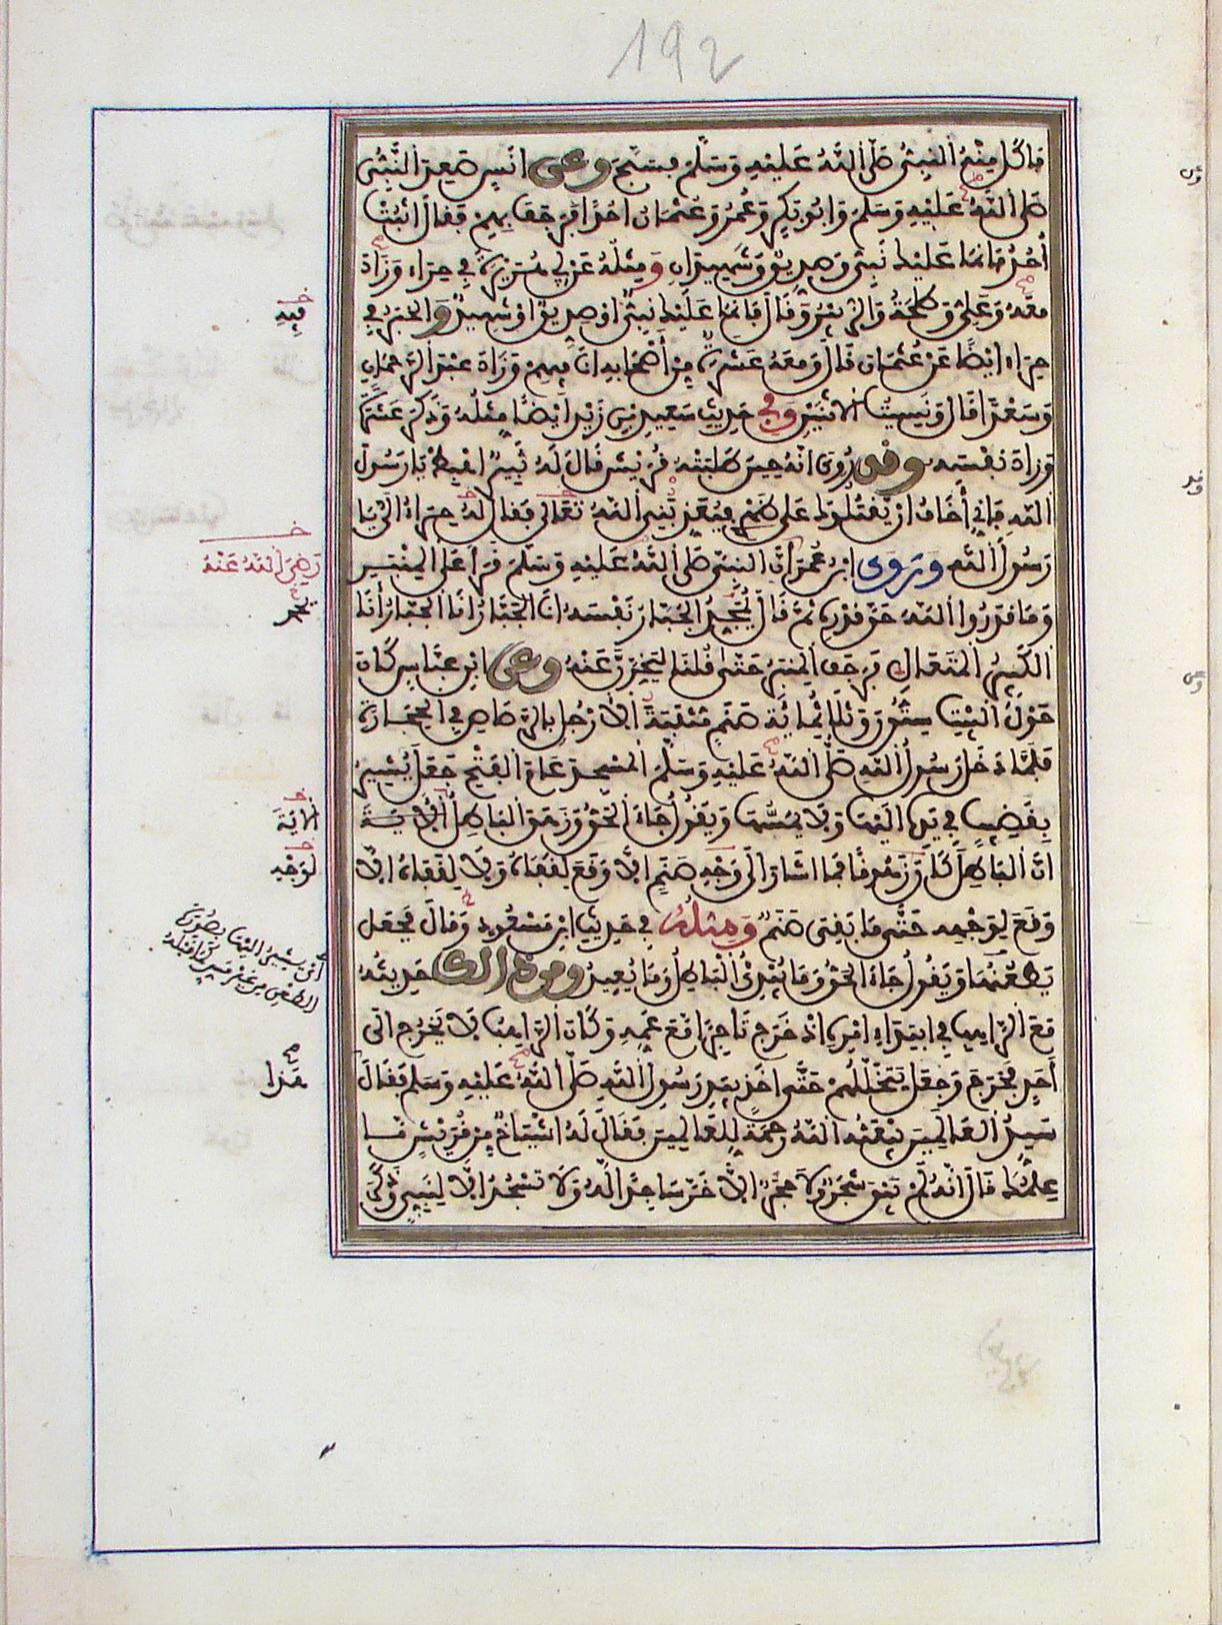 192
فَأَكَلَ مِنْهُ النَّبِيُّ صَلَّى اللَّهُ عَلَيْهِ وَسَلَّمَ فَسَبَّحَ وعن أنَسٍ صَعِدَ النَّبِيُّ
صَلَّى اللَّهُ عَلَيْهِ وَسَلَّمَ وَأَبُو بَكْرٍ وَعُمَرُ وَعُثْمَانُ أُحُدًا فَرَجَفَ بِهِمْ فَقَالَ اثْبُتْ
أُحُدُ فَإِنَّمَا عَلَيْكَ نَبِيٌّ وَصِدِّيقٌ وَشَهِيدَانِ وَمِثْلُهُ عَنْ أَبِي هُرَيْرَةَ فِي حِرَاءَ وَزَادَ
مَعَهُ وَعَلِيٌّ وَطَلْحَةُ وَالزُّبَيْرُ وَقَالَ فَإِنَّمَا عَلَيْكَ نَبِيٌّ أَوْ صِدِّيقٌ أَوْ شَهِيدٌ وَالْخَبَرُ فِي
حِرَاءَ أيْضًا عَنْ عُثْمَانَ قَالَ وَمَعَهُ عَشَرَةٌ مِنْ أَصْحَابِهِ أنَا فِيهِمْ وَزَادَ عَبْدَ الرَّحْمَانِ
وَسَعْدًا قَالَ وَنَسِيتُ الاثْنَيْنِ وَفِي حَدِيثِ سَعِيدِ بْنِ زَيْدٍ أَيْضًا مِثْلُهُ وَذَكَرَ عَشَرَةً
وَزَادَ نَفْسَهُ وقد رُوِيَ أنَّهُ حِينَ طَلَبَتْهُ قُرَيْشٌ قَالَ لَهُ ثَبِيرٌ اهْبِطْ يَا رَسُولَ
اللَّهِ فَإِنِّي أَخَافُ أَنْ يَقْتُلُوكَ عَلَى ظَهْرِي فَيُعَذِّبَنِي اللَّهُ تَعَالَى فَقَالَ لَهُ حِرَاءُ إلَيَّ يَا
رَسُولَ اللَّهِ وَرَوَى ابْنُ عُمَرَ أنَّ النَّبِيَّ صَلَّى اللَّهُ عَلَيْهِ وَسَلَّمَ قَرَأَ عَلَى الْمِنْبَرِ
وَمَا قَدَرُوا اللَّهَ حَقَّ قَدْرِهِ ثُمَّ قَالَ يُمَجِّدُ الْجَبَّارُ نَفْسَهُ أنَا الْجَبَّارُ أَنَا الْجَبَّارُ أَنَا
الْكَبِيرُ الْمُتَعَالِ فَرَجَفَ الْمِنْبَرُ حَتَّى قُلْنَا لَيَخِرَّنَّ عَنْهُ وعن ابْنِ عَبَّاسٍ كَانَ
حَوْلَ الْبَيْتِ سِتُّونَ وَثَلَاثُمِائَةِ صَنَمٍ مُثَبَّتَةَ الْأَرْجُلِ بِالرَّصَاصِ فِي الْحِجَارَةِ
فَلَمَّا دَخَلَ رَسُولُ اللَّهِ صَلَّى اللَّهُ عَلَيْهِ وَسَلَّمَ الْمَسْجِدَ عَامَ الْفَتْحِ جَعَلَ يُشِيرُ
بِقَضِيبٍ فِي يَدِهِ إلَيْهَا وَلَا يَمَسُّهَا وَيَقُولُ جَاءَ الْحَقُّ وَزَهَقَ الْبَاطِلُ الْأيَةَ
انَّ الْبَاطِلَ كَانَ زَهُوقًا فَمَا أشَارَ إلَى وَجْهِ صَنَمٍ إلَّا وَقَعَ لِقَفَاهُ وَلَا لِقَفَاهُ إلَّا
وَقَعَ لِوَجْهِهِ حَتَّى مَا بَقِيَ صَنَمٌ وَمِثْلُهُ فِي حَدِيثِ ابْنِ مَسْعُودٍ وَقَالَ فَجَعَلَ
يَطْعُنُهَا وَيَقُولُ جَاءَ الْحَقُّ وَمَا يُبْدِئُ الْبَاطِلُ وَمَا يُعِيدُ ومن ذلك حَدِيثُهُ
مَعَ الرَّاهِبِ فِي ابْتِدَاءِ أمْرِهِ إذْ خَرَجَ تَاجِرًا مَعَ عَمِّهِ وَكَانَ الرَّاهِبُ لَا يَخْرُجُ إلَى
أَحَدٍ فَخَرَجَ وَجَعَلَ يَتَخَلَّلُهُمْ حَتَّى أخَذَ بِيَدِ رَسُولِ اللَّهِ صَلَّى اللَّهُ عَلَيْهِ وَسَلَّمَ فَقَالَ
سَيِّدُ الْعَالَمِينَ يَبْعَثُهُ اللَّهُ رَحْمَةً لِلْعَالَمِينَ فَقَالَ لَهُ أشْيَاخٌ مِنْ قُرَيْشٍ مَا
عِلْمُكَ قَالَ إنَّهُ لَمْ يَبْقَ شَجَرٌ وَلَا حَجَرٌ إلَّا خَرَّ سَاجِدًا لَهُ وَلَا تَسْجُدُ إلَّا لِنَبِيٍّ وَذَكَرَ
فِيهِ
رَضِيَ اللَّهُ عَنْهُ
الأيَةَ
لِوَجْهِ
هَذَا